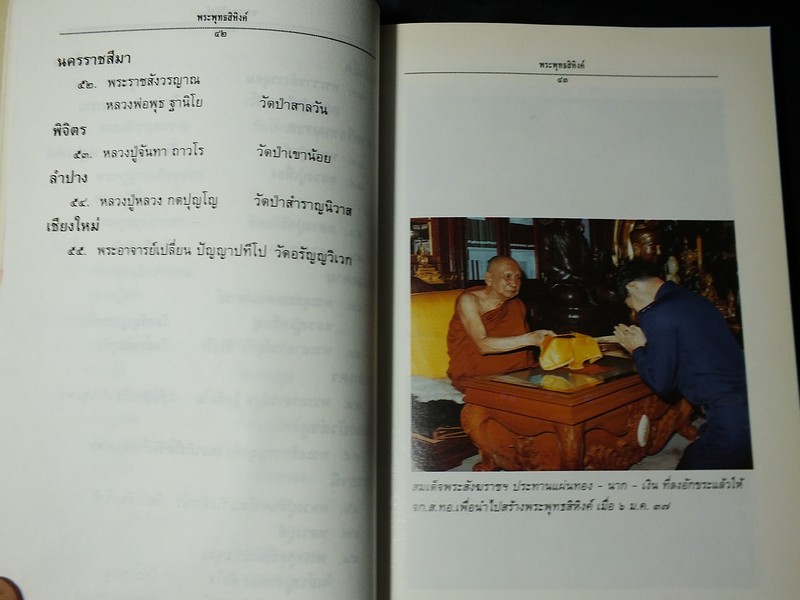 พระพุทธสิหิงค์
๔๒
นครราชสีมา
๕๒. พระราชสังวรญาณ
หลวงพ่อพุธ ฐานิโย วัดป่าสาลวัน
พิจิตร
๕๓. หลวงปู่จันทา ถาวโร วัดป่าเขาน้อย
ลำปาง
๕๔. หลวงปู่หลวง กตปุญโญ วัดป่าสำราญนิวาส
เชียงใหม่
๕๕. พระอาจารย์เปลี่ยน ปัญญาปทีโป วัดอรัญญวิเวก
พระพุทธสิหิงค์
๔๓
สมเด็จพระสังฆราชฯ ประทานแผ่นทอง - นาก - เงิน ที่ลงอักขระแล้วให้
จก.ส.ทอ.เพื่อนำไปสร้างพระพุทธสิหิงค์ เมื่อ ๖ ม.ค. ๓๗